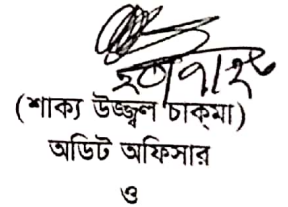 (শাক্য উজ্জ্বল চাক্‌মা)
অডিট অফিসার
ও